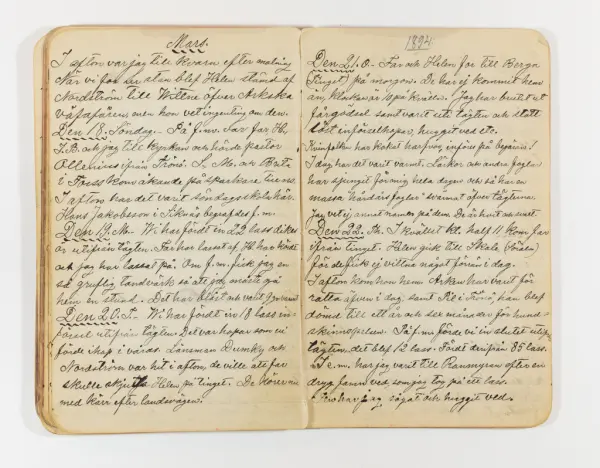 Mars.
I afton var jag till kvarn efter malning
När vi for in stan blef Helen stämd af
Nordström till Wittne öfver Arkska
men hon vet ingenting om den.
Den 18. Söndag. På f.m. var far H,
J.B. och jag till kyrkan och hörde pastor
Ollenius ifrån Trönö. L. M. och Brita
i Forss kom åkande på sparkare hem.
I afton har det varit söndagsskola här.
Hans Jakobsson i Siknäs begrafdes f.m.
Den 19. M. Wi har fördt in 22 lass dikes
or utifrån tägten. Far har lassat af, H. har kördt
och jag har lassat på. Om f.m. fick jag en
så gruflig tandvärk så att jag måste gå
hem en stund. Det har blåst och varit
Den 20. T. Wi har fördt in 18 lass
utifrån tägten. Det var hopar som vi
förde ihop i våras. Länsman Dumky och
Nordström var hit i afton, de ville att far
skulle skjutsa Helen på tinget. De körer nu
med kärr efter landsvägen.
1894
Den 21. O. Far och Helen for till Berga
(Tinget) på morgon. De har ej kommit hem
än, klockan är 10 på kvällen. Jag har brutit ut
fårgödsel samt varit ute tägten och slätt
löst införselhopar, huggit ved etc.
Kvinfolken har kokat harfvog, införs på begäran!
I dag har det varit varmt. Lärkor och andra foglar
har sjungit för mig hela dagen och så har en
massa "hårdårsfoglar" svärmat öfver tägterna.
Jag vet ej annat namn på dem. De är hvit och svart
Den 22. Th. I kvället kl. half 11 kom far
ifrån tinget. Helen gick till Skale (Norrala)
för de fick ej vittna något förrän i dag.
I afton kom hon hem. Arken har varit för
rätta äfven i dag, samt Ril i Trönö, han blef
dömd till ett år och sex månader för hund-
skinnspelsen. På f.m. förde vi in slutet utifrån
tägten. det blef 12 lass. Fördt derifrån 85 lass.
På e.m. har jag varit till Rannmyran efter en
dryg famn ved som jag tog på ett lass.
Far har jag sågat och huggit ved.